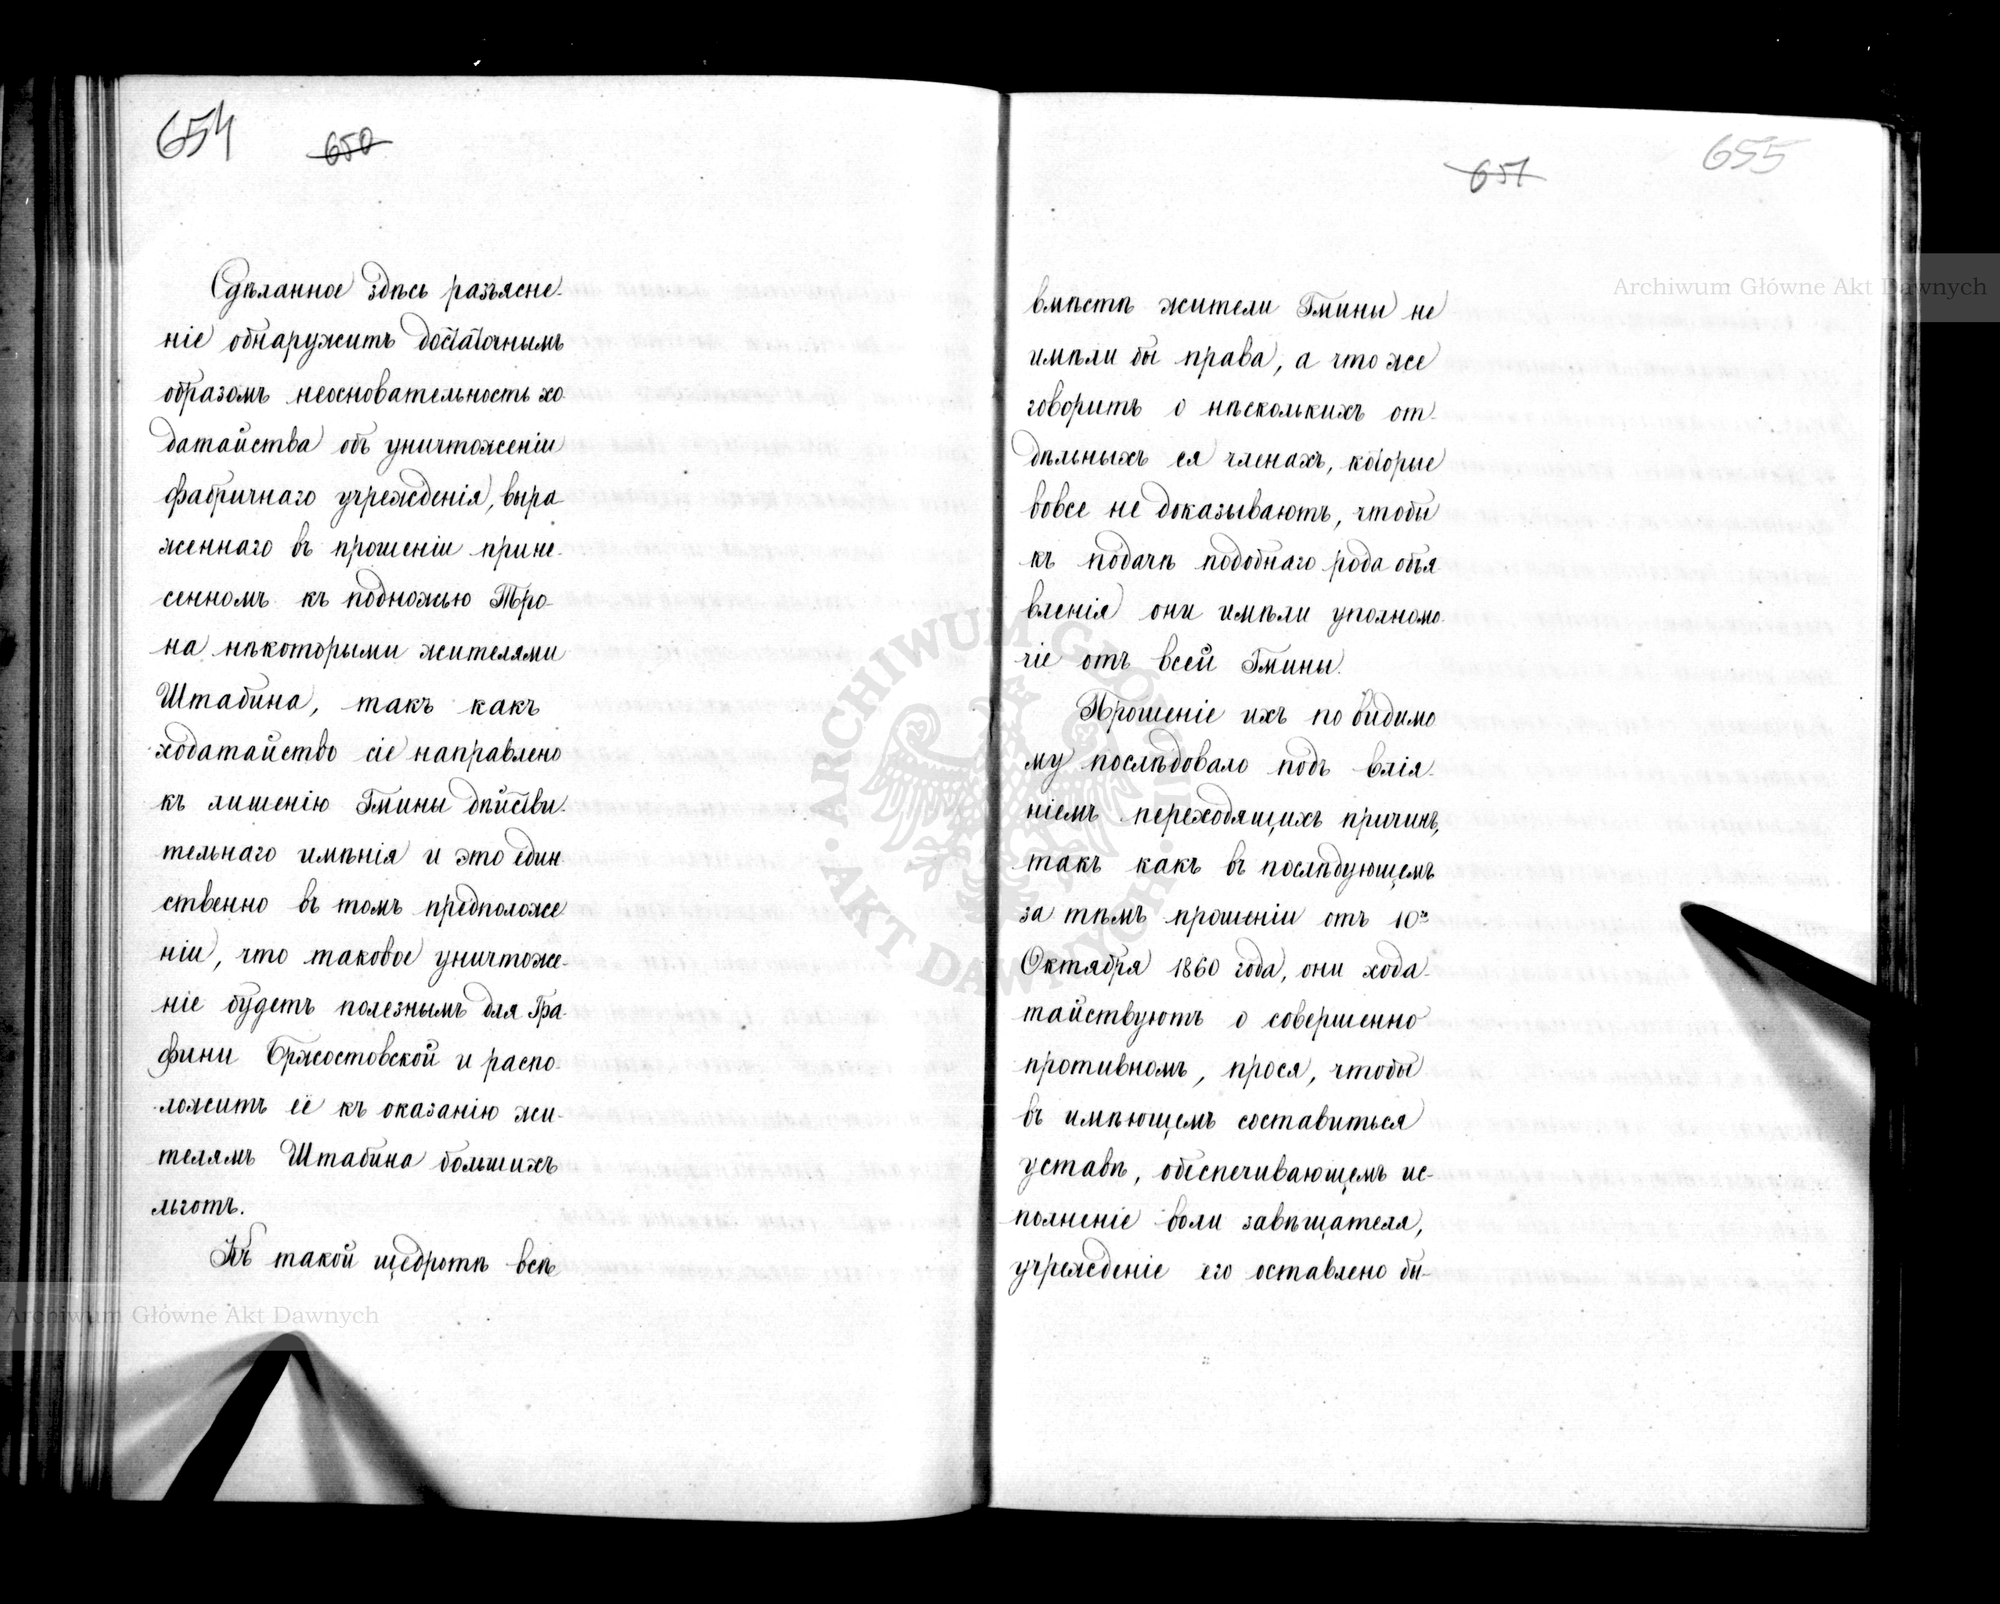 654
650
Сдѣланное здѣсь разъясне-
ніе обнаружитъ достаточнымъ
образомъ неосновательность хо-
датайства объ уничтоженіи
фабричнаго учрежденія, выра
женнаго въ прошеніи прине-
сенномъ къ подножью Тро-
на нѣкоторыми жителями
Штабина, такъ какъ
ходатайство сіе направлено
къ лишенію Гмины дѣйстви-
тельнаго имѣнія и это един
ственно въ томъ предположе
ніи, что таковое уничтоже-
ніе будетъ полезнымъ для Гра-
фини Бржостовской и распо-
ложитъ её къ оказанію жи-
телямъ Штабина большихъ
льготъ.
Къ такой щедротѣ всѣ
655
651
вмѣстѣ жители Гмины не
имѣли бы права, а что же
говорить о нѣсколькихъ от-
дѣльныхъ ея членахъ, которые
вовсе не доказываютъ, чтобы
къ подачѣ подобнаго рода объя
вленія они имѣли уполномо-
чіе отъ всей Гмины.
Прошеніе ихъ по видимо
му послѣдовало подъ влія-
ніемъ переходящихъ причинъ,
такъ какъ въ послѣдующемъ
за тѣмъ прошеніи отъ 10го
Октября 1860 года, они хода-
тайствуютъ о совершенно
противномъ, прося, чтобы
въ имѣющемъ составиться
уставѣ, обеспечивающемъ ис-
полненіе воли завѣщателя,
учрежденіе его оставлено бы-
Archiwum Główne Akt Dawnych
Archiwum Główne Akt Dawnych
ARCHIWUM GŁÓWNE
AKT DAWNYCH